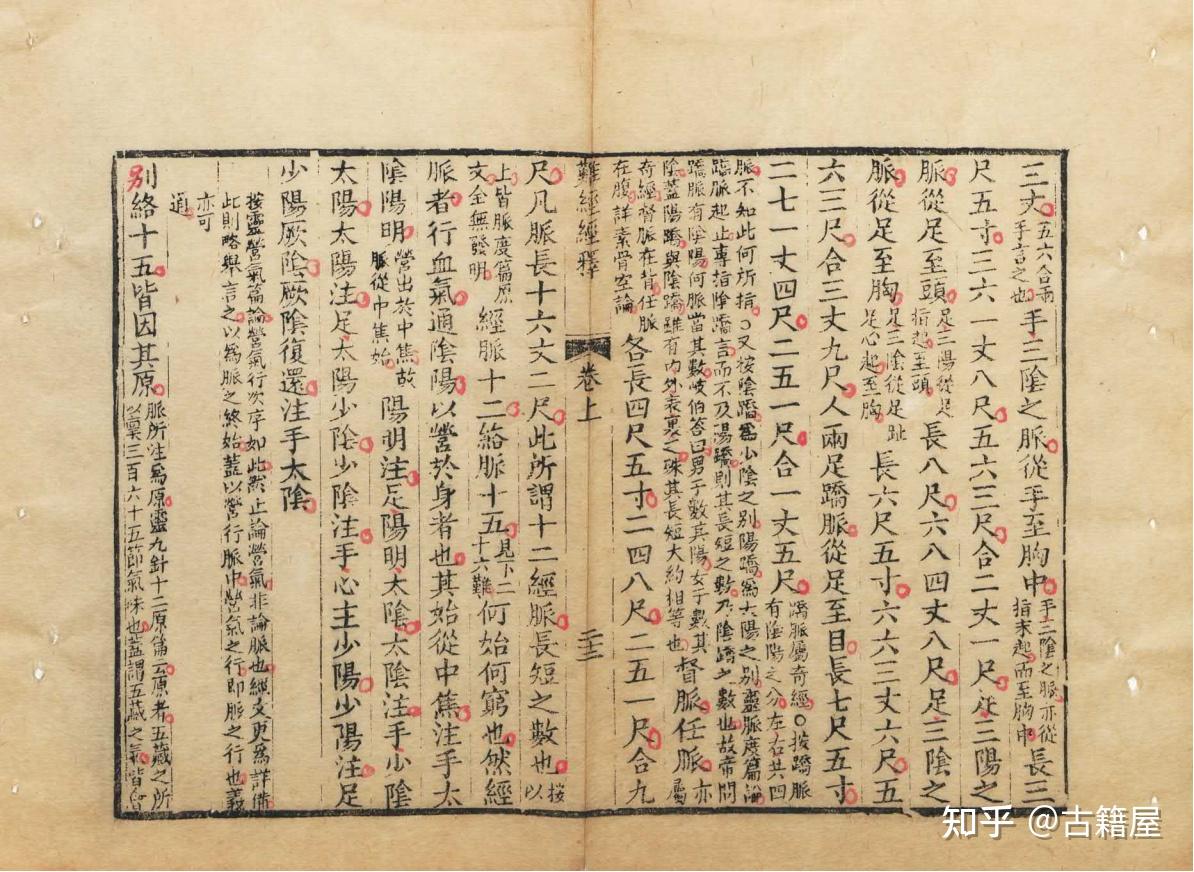 三丈五六合兩手言之也手三陰之脈從手至胸中手三陰之脈亦從指末起而至胸中長三
尺五寸三六一丈八尺五六三尺合二丈一尺足三陽之
脈從足至頭足三陽從足指起至頭長八尺六八四丈八尺足三陰之
脈從足至胸足三陰從足趾足心起至胸長六尺五寸六六三丈六尺五
六三尺合三丈九尺人兩足蹻脈從足至目長七尺五寸
二七一丈四尺二五一尺合一丈五尺蹻脈屬奇經○按蹻脈有陰陽之分左右共四
脈不知此何所指○又按陰蹻爲少陰之別陽蹻爲太陽之別靈脈度篇論
蹻脈起止專指陰蹻言而不及陽蹻則其長短之數乃陰蹻之數也故帝問
蹻脈有陰陽何脈當其數岐伯答曰男子數其陽女子數其陰蓋陽蹻與陰蹻雖有內外表裏之殊其長短大約相等也督脈任脈亦屬
奇經督脈在背任脈在腹詳素骨空論各長四尺五寸二四八尺二五一尺合九
難經經釋 卷上 二十二
尺凡脈長十六丈二尺此所謂十二經脈長短之數也按以
上皆脈度篇原文全無發明經脈十二絡脈十五見下二十六難何始何窮也然經
脈者行血氣通陰陽以營於身者也其始從中焦注手太
陰陽明營出於中焦故脈從中焦始陽明注足陽明太陰太陰注手少陰
太陽太陽注足太陽少陰少陰注手心主少陽少陽注足
少陽厥陰厥陰復還注手太陰
按靈營氣篇論營氣行次序如此然止論營氣非論脈也經文更爲詳備
此則略舉言之以爲脈之終始蓋以營行脈中營氣之行即脈之行也義
亦可
通
別絡十五皆因其原脈所注爲原靈九針十二原篇云原者五藏之所以稟三百六十五節氣味也蓋謂五藏之氣皆會
知乎 @古籍屋